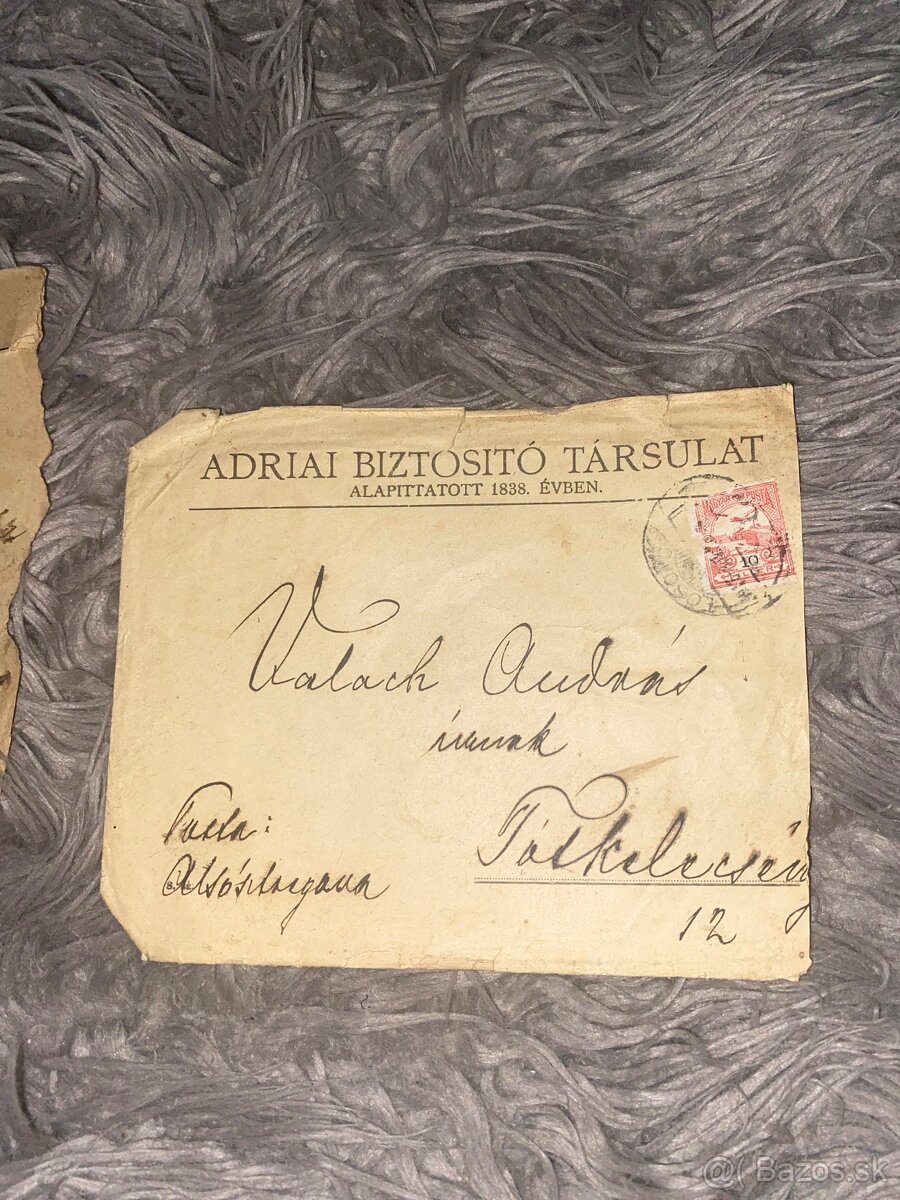 ADRIAI BIZTOSITÓ TÁRSULAT
ALAPITTATOTT 1838. ÉVBEN.
MAGYAR KIR. POSTA
10
Valach András
úrnak
Posta:
Alsósztregova
Tótkelecsény
12
@( Bazos.sk